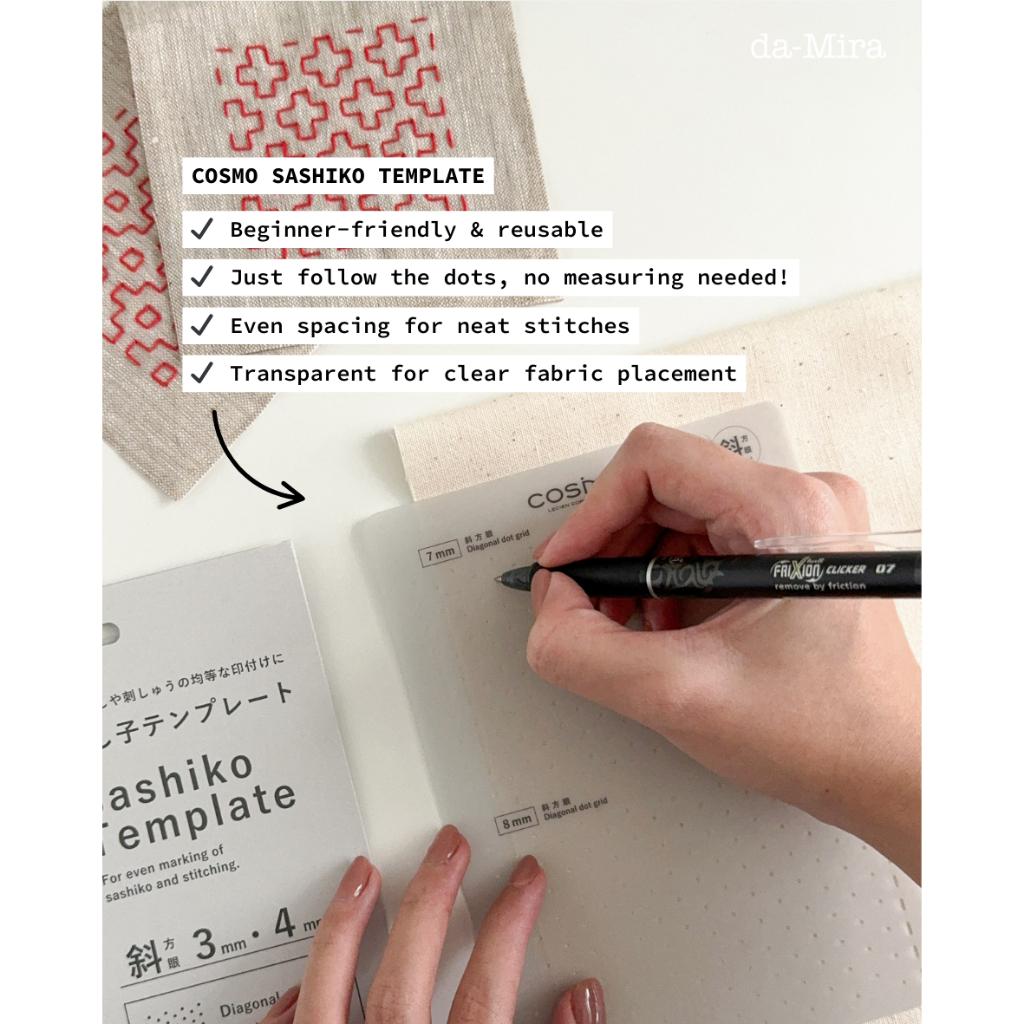 da-Mira
COSMO SASHIKO TEMPLATE
✓ Beginner-friendly & reusable
✓ Just follow the dots, no measuring needed!
✓ Even spacing for neat stitches
✓ Transparent for clear fabric placement
斜 方眼
7 mm 斜方眼
Diagonal dot grid
FRIXION CLICKER 07
remove by friction
や刺しゅうの均等な印付けに
し子テンプレート
Sashiko
Template
For even marking of
sashiko and stitching.
斜 方眼 3 mm・4
Diagonal
8 mm 斜方眼
Diagonal dot grid